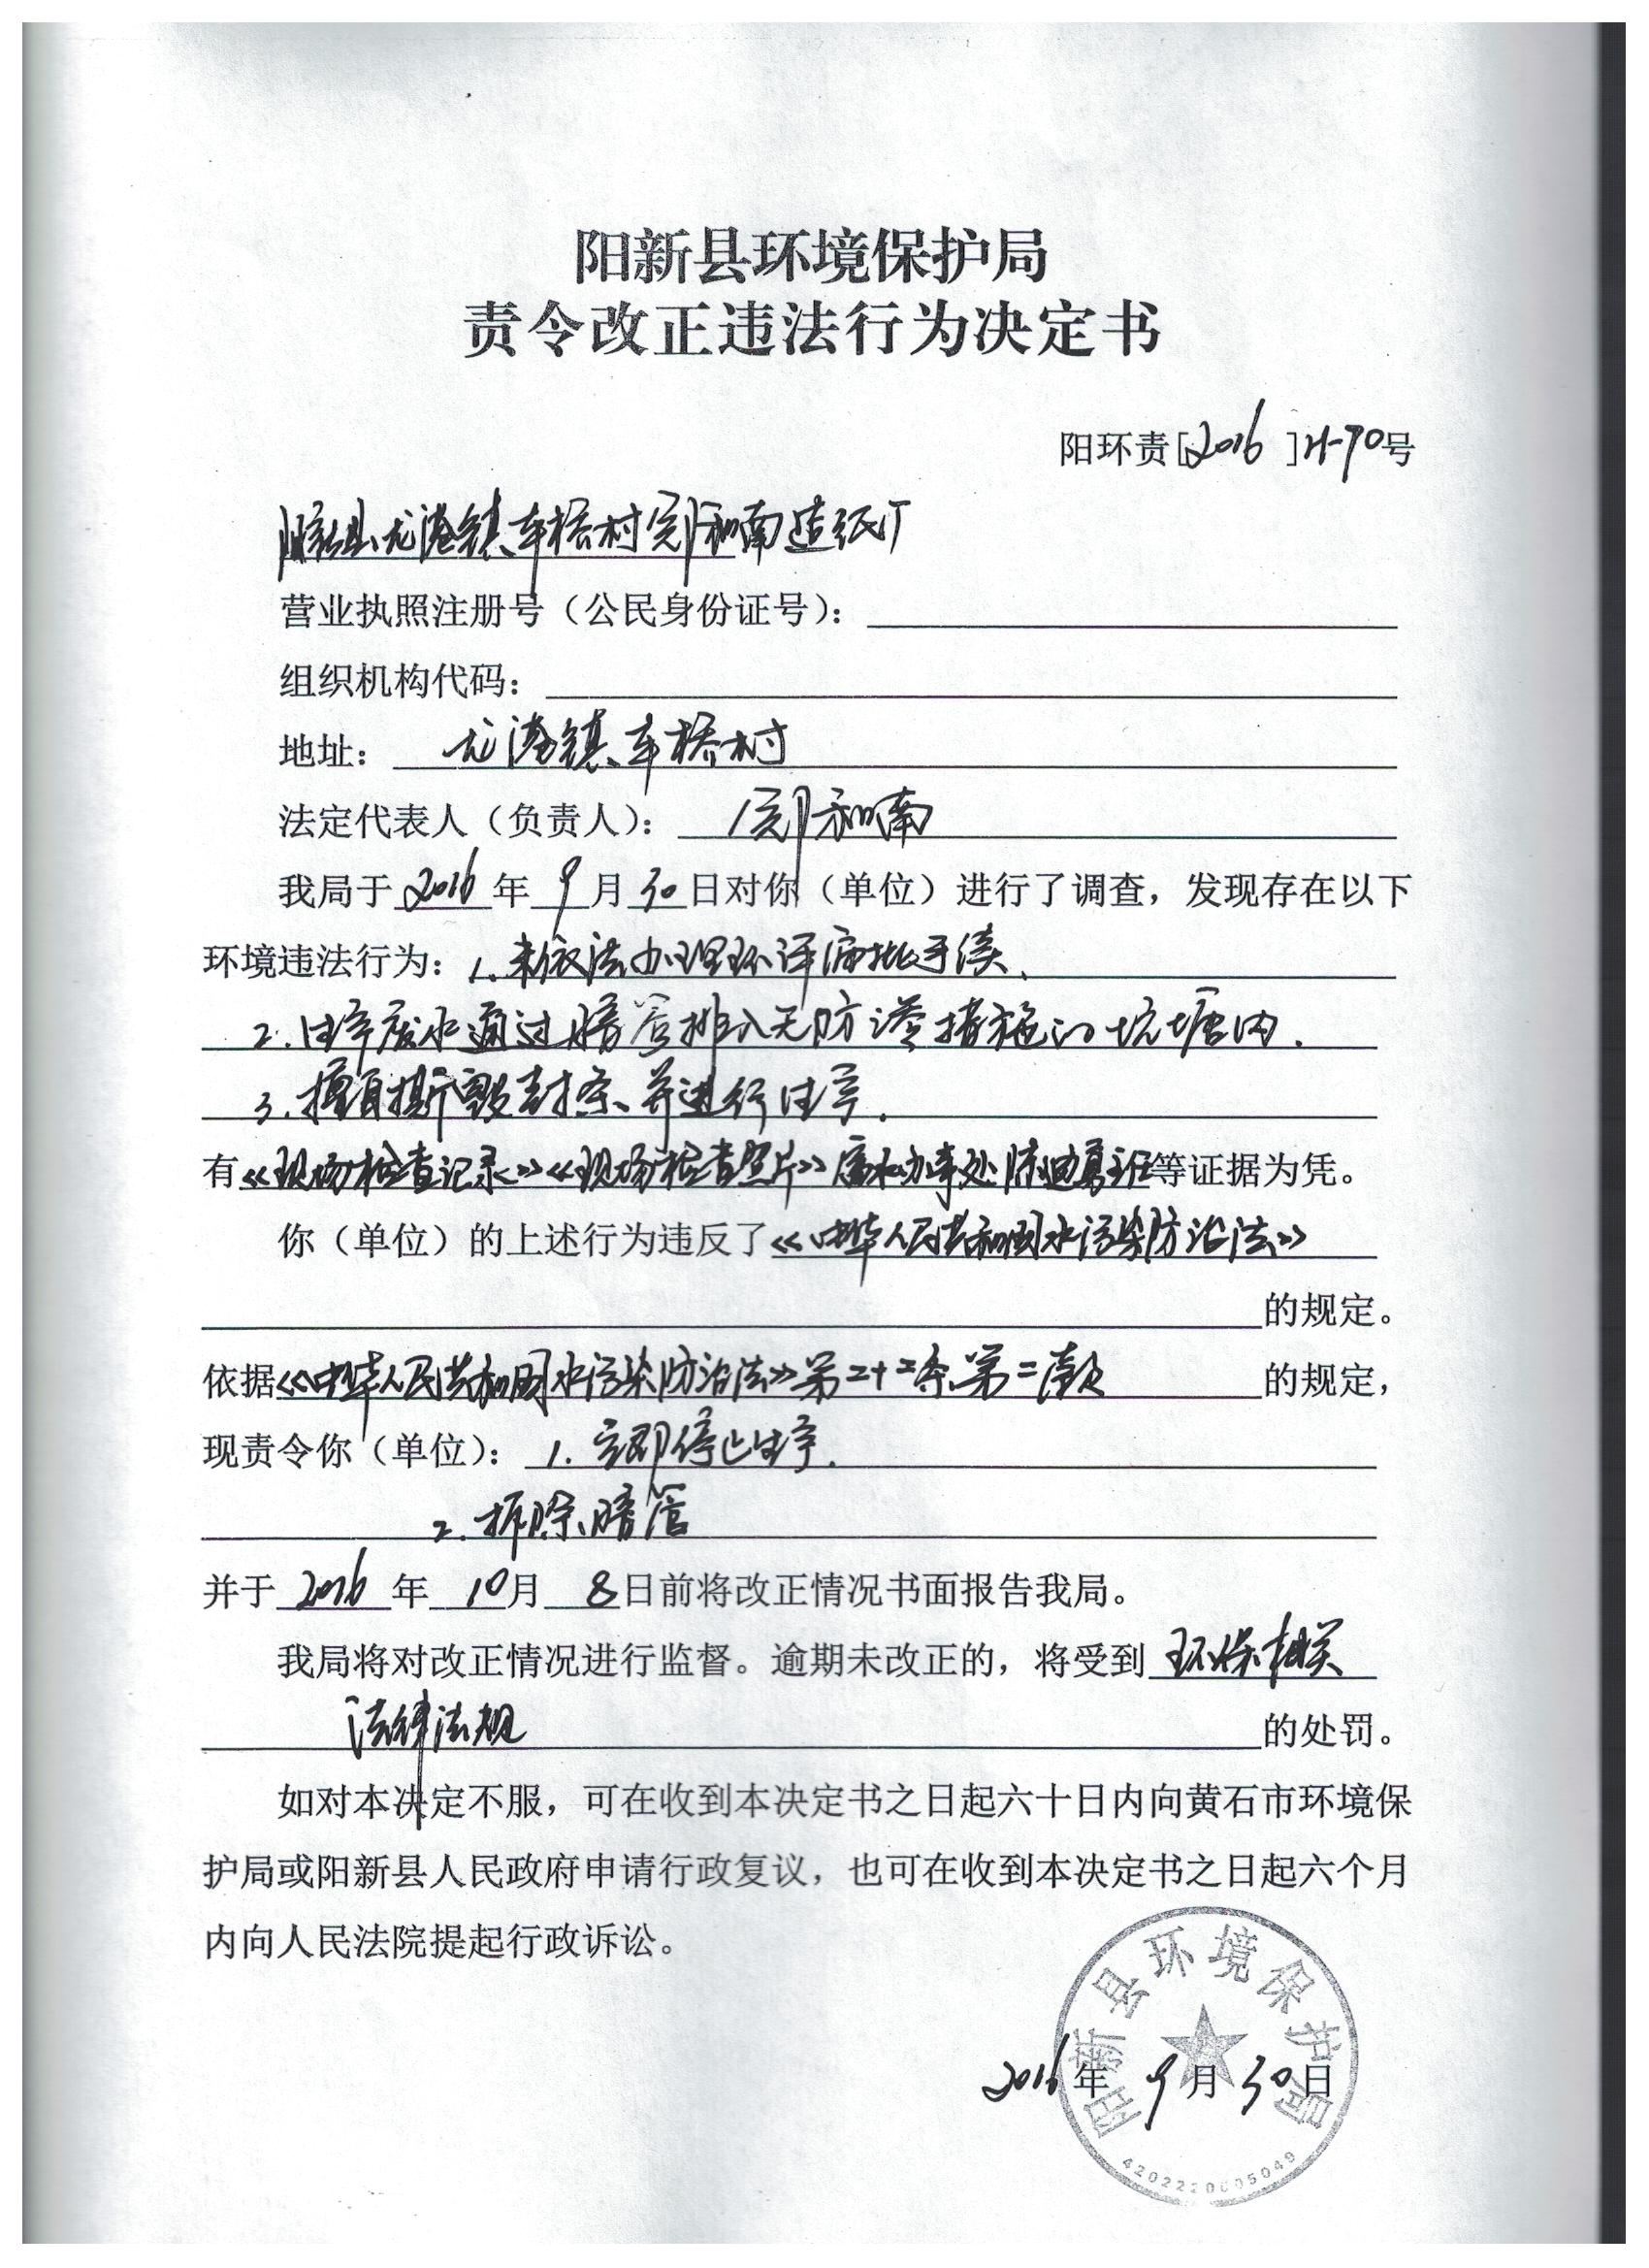 阳新县环境保护局
责令改正违法行为决定书
阳环责[2016]H-70号
阳新县龙港镇车桥村完和南造纸厂
营业执照注册号（公民身份证号）：
组织机构代码：
地址：龙港镇车桥村
法定代表人（负责人）：和南
我局于2016年9月30日对你（单位）进行了调查，发现存在以下
环境违法行为：1.未依法办理环评审批手续、
2.生产废水通过暗管排入无防渗措施的坑塘内.
3.擅自撕毁封条、并进行生产.
有《现场检查记录》《现场检查照片》富和办事处等证据为凭。
你（单位）的上述行为违反了《中华人民共和国水污染防治法》
的规定。
依据《中华人民共和国水污染防治法》第二十二条第二款的规定，
现责令你（单位）：1.立即停止生产.
2.拆除暗管
并于2016年10月8日前将改正情况书面报告我局。
我局将对改正情况进行监督。逾期未改正的，将受到环保相关
法律法规的处罚。
如对本决定不服，可在收到本决定书之日起六十日内向黄石市环境保
护局或阳新县人民政府申请行政复议，也可在收到本决定书之日起六个月
内向人民法院提起行政诉讼。
阳新县环境保护局
2016年9月30日
4202220005049